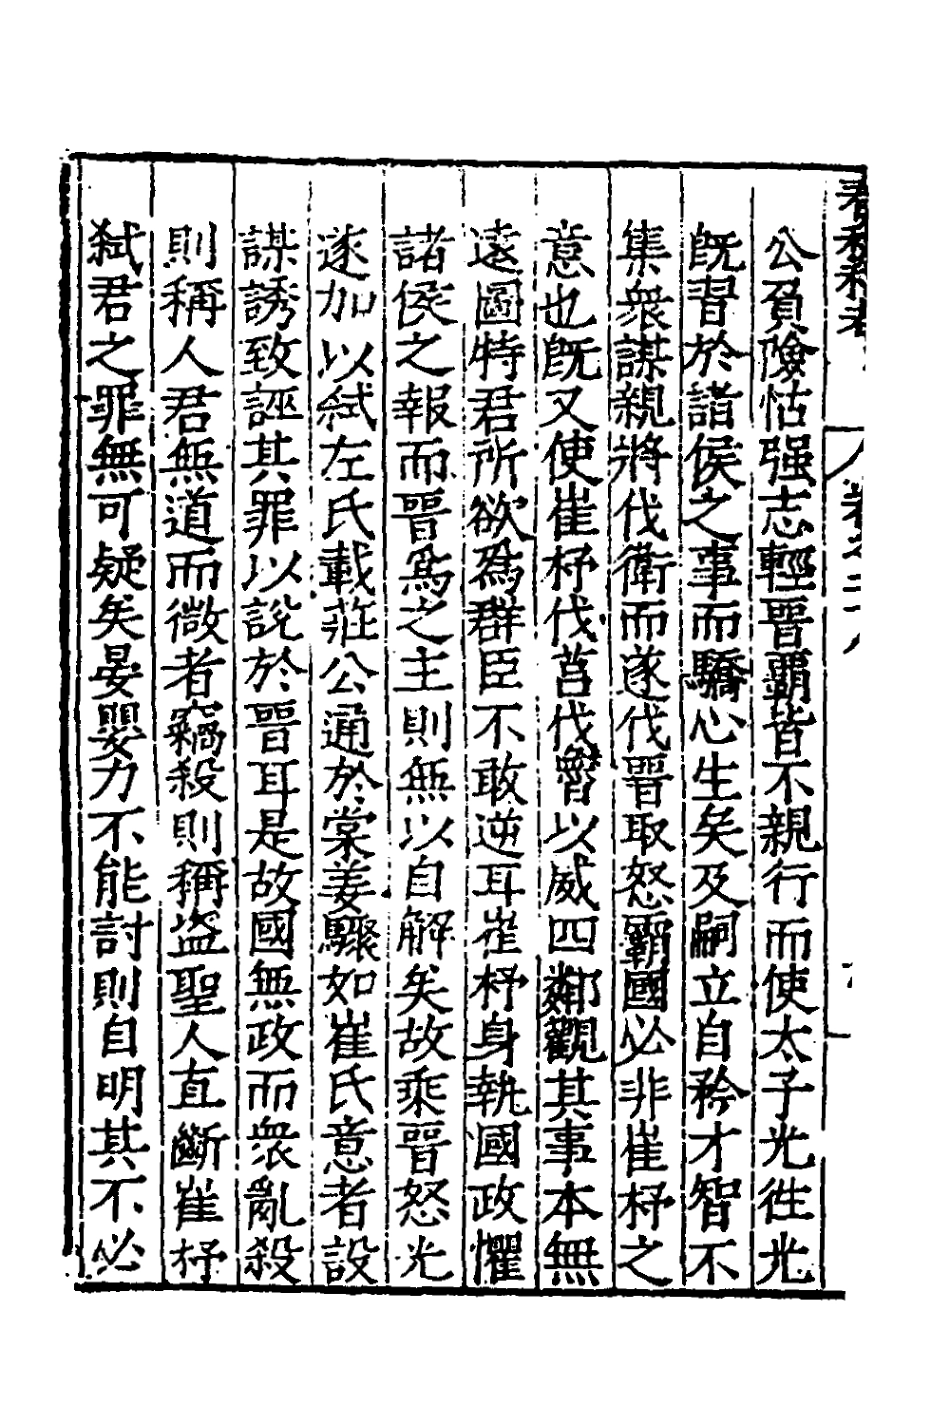 公負險怙强志輕晋霸皆不親行而使太子光徃光
旣習於諸侯之事而驕心生矣及嗣立自矜才智不
集衆謀親將伐衛而遂伐晋取怒霸國必非崔杼之
意也旣又使崔杼伐莒伐魯以威四鄰觀其事本無
遠圖特君所欲爲群臣不敢逆耳崔杼身執國政懼
諸侯之報而晋爲之主則無以自解矣故乘晋怒光
遂加以弑左氏載莊公通於棠姜驟如崔氏意者設
謀誘致誣其罪以說於晋耳是故國無政而衆亂殺
則稱人君無道而微者竊殺則稱盗聖人直斷崔杼
弑君之罪無可疑矣晏嬰力不能討則自明其不必